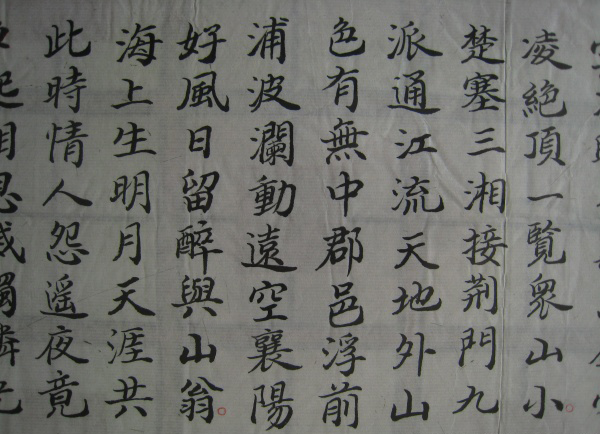 凌絕頂一覽眾山小
楚塞三湘接荆門九
派通江流天地外山
色有無中郡邑浮前
浦波瀾動遠空襄陽
好風日留醉與山翁
海上生明月天涯共
此時情人怨遥夜竟